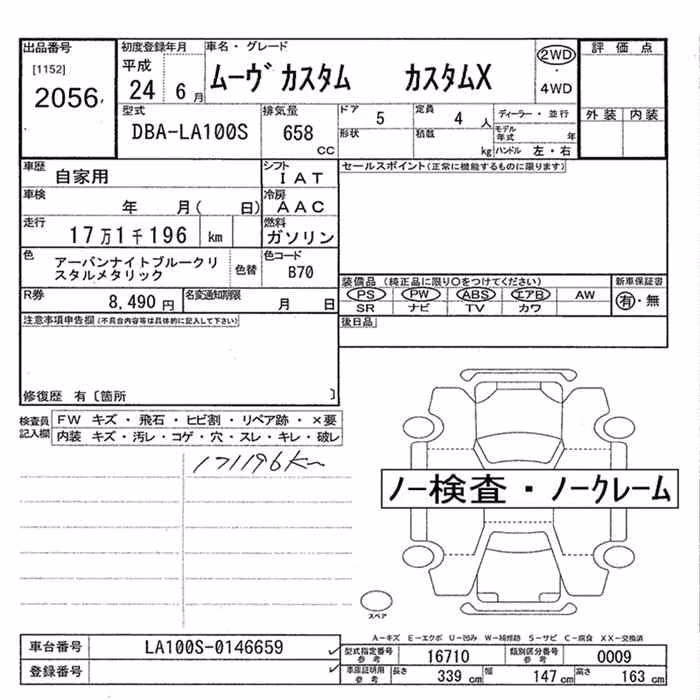 出品番号
[1152]
2056
初度登録年月
平成
24 6 月
車名・グレード
ムーヴ カスタム カスタムX
2WD
・
4WD
評価点
外装 内装
型式
DBA-LA100S
排気量
658 cc
ドア 5
形状
定員 4 人
積載 kg
ディーラー・並行
モデル年式 年
ハンドル 左・右
車歴 自家用
シフト IAT
車検 年 月( 日)
冷房 AAC
走行 17万1千196 km
燃料 ガソリン
色 アーバンナイトブルークリ
スタルメタリック
色替
色コード B70
R券 8,490 円
名変通知期限 月 日
セールスポイント(正常に機能するものに限ります)
装備品 (純正品に限り○をつけてください)
PS PW ABS エアB AW
SR ナビ TV カワ
新車保証書
有・無
後日品
注意事項申告欄(不具合内容等は具体的に記入して下さい)
修復歴 有〔箇所 〕
検査員
記入欄
FW キズ・飛石・ヒビ割・リペア跡・×要
内装 キズ・汚レ・コゲ・穴・スレ・キレ・破レ
171196Km
ノー検査・ノークレーム
スペア
A-キズ E-エクボ U-凹み W-補修跡 S-サビ C-腐食 XX-交換済
車台番号 LA100S-0146659
登録番号
型式指定番号 参考 16710
類別区分番号 参考 0009
車庫証明用 参考 長さ 339 cm 幅 147 cm 高さ 163 cm